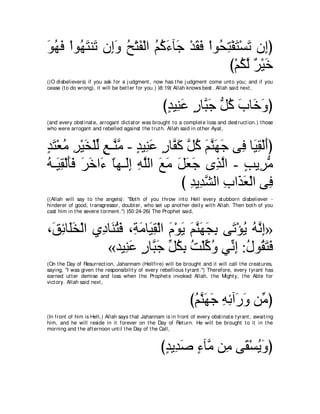 وَهُوَ وَإِن تَنتَهُواْ الْفَتْحُ جَآءَكُمُ فَقَدْ تَسْتَفْتِحُواْ إِن)
(خَيْرٌ لَّكُمْ
((O disbelievers) if you ask for a judgment, now has the judgment come unto you; and if you
cease (to do wrong), it will be better for you.) [8:19] Allah knows best. Allah said next,
(وَخَابَ كُلُّ جَبَّارٍ عَنِيدٍ)
(and every obstinate, arrogant dictator was brought to a complete loss and destruction.) those
who were arrogant and rebelled against the truth. Allah said in other Ayat,
(أَلْقِيَا فِى جَهَنَّمَ كُلَّ كَفَّارٍ عَنِيدٍ - مَّنَّـعٍ لِّلْخَيْرِ مُعْتَدٍ
مُّرِيبٍ - الَّذِى جَعَلَ مَعَ اللَّهِ إِلَـهاً ءَاخَرَ فَأَلْقِيَـهُ
فِى الْعَذَابِ الشَّدِيدِ )
((Allah will say to the angels): "Both of you throw into Hell every stubborn disbeliever -
hinderer of good, transgressor, doubter, who set up another deity with Allah. Then both of you
cast him in the severe torment.") (50:24-26) The Prophet said,
«إِنَّهُ يُؤْتَى بِجَهَنَّمَ يَوْمَ الْقِيَامَةِ، فَتُنَادِي الْخَلَائِقَ،
فَتَقُولُ: إِنِّي وُكِّلْتُ بِكُلِّ جَبَّارٍ عَنِيد»
(On the Day of Resurrection, Jahannam (Hellfire) will be brought and it will call the creatures,
saying, "I was given the responsibility of every rebellious tyrant.") Therefore, every tyrant has
earned utter demise and loss when the Prophets invoked Allah, the Mighty, the Able for
victory. Allah said next,
(مِّن وَرَآئِهِ جَهَنَّمُ)
(In front of him is Hell,) Allah says that Jahannam is in front of every obstinate tyrant, awaiting
him, and he will reside in it forever on the Day of Return. He will be brought to it in the
morning and the afternoon until the Day of the Call,
(وَيُسْقَى مِن مَّآءٍ صَدِيدٍ)